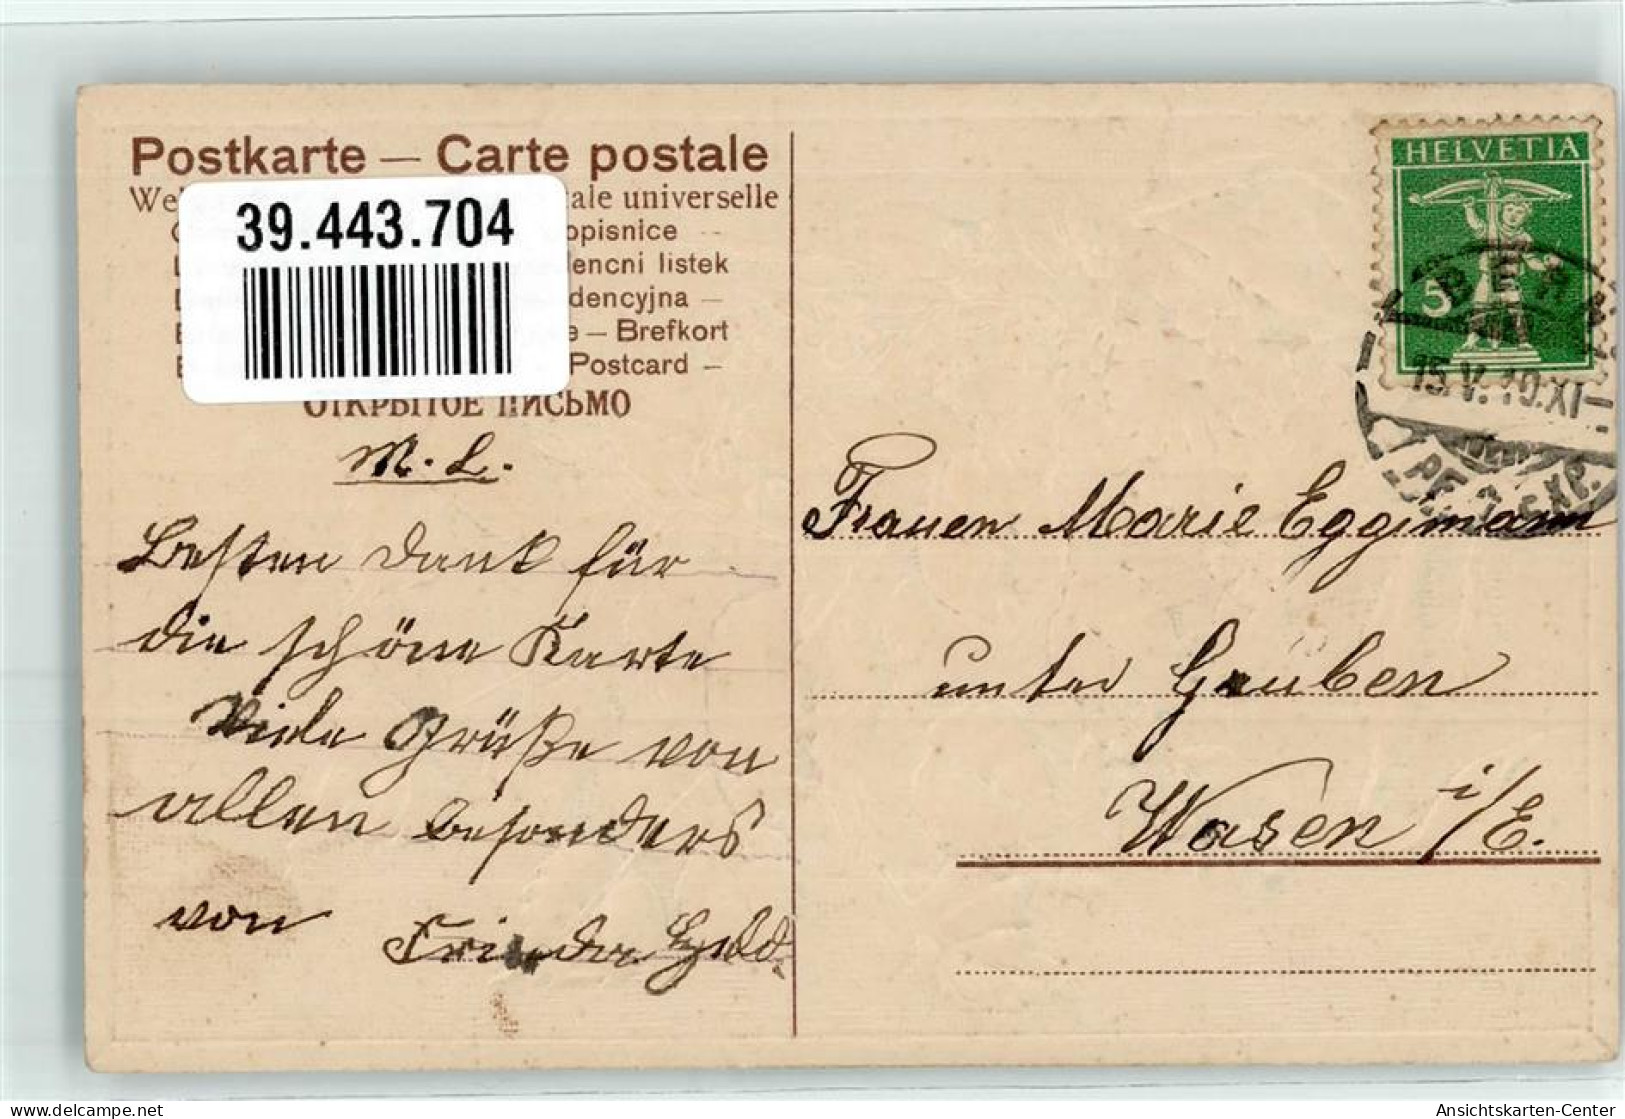 Postkarte — Carte postale
tale universelle
39.443.704
opisnice
listek
dencyjna —
— Brefkort
Postcard —
ОТКРЫТОЕ ПИСЬМО
M. L.
Besten Dank für
die schöne Karte
Viele Grüße von
allen besonders
von
HELVETIA
5
BERN
15.V.10.XI—
EXP.
Frauen Marie Eggimann
unter Gruben
Wasen i/E.
delcampe.net
Ansichtskarten-Center